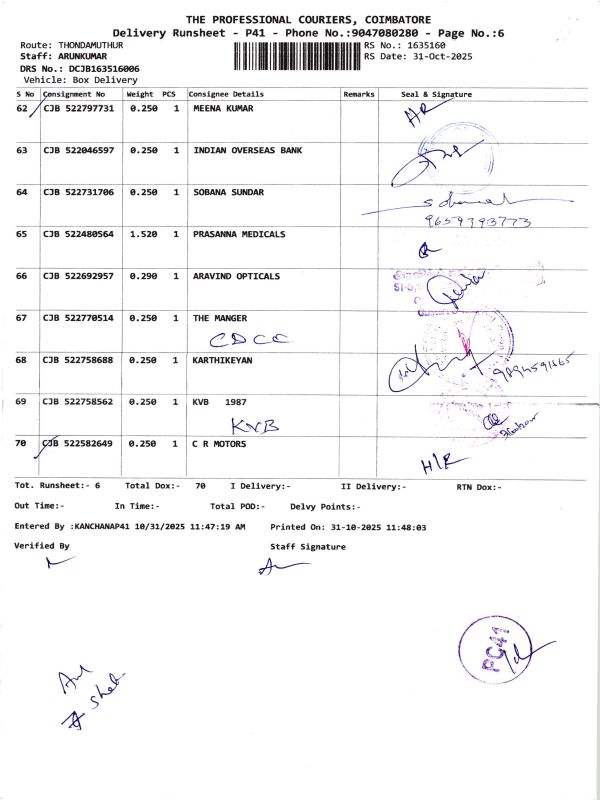 THE PROFESSIONAL COURIERS, COIMBATORE
Delivery Runsheet - P41 - Phone No.:9047080280 - Page No.:6
Route: THONDAMUTHUR
RS No.: 1635160
Staff: ARUNKUMAR
RS Date: 31-Oct-2025
DRS No.: DCJB163516006
Vehicle: Box Delivery
S No Consignment No Weight PCS Consignee Details Remarks Seal & Signature
62 CJB 522797731 0.250 1 MEENA KUMAR
63 CJB 522046597 0.250 1 INDIAN OVERSEAS BANK
64 CJB 522731706 0.250 1 SOBANA SUNDAR
9659793773
65 CJB 522480564 1.520 1 PRASANNA MEDICALS
66 CJB 522692957 0.290 1 ARAVIND OPTICALS
67 CJB 522770514 0.250 1 THE MANGER
CDCC
68 CJB 522758688 0.250 1 KARTHIKEYAN
69 CJB 522758562 0.250 1 KVB 1987
KVB
70 CJB 522582649 0.250 1 C R MOTORS
Tot. Runsheet:- 6 Total Dox:- 70 I Delivery:- II Delivery:- RTN Dox:-
Out Time:- In Time:- Total POD:- Delvy Points:-
Entered By :KANCHANAP41 10/31/2025 11:47:19 AM Printed On: 31-10-2025 11:48:03
Verified By Staff Signature
PC41